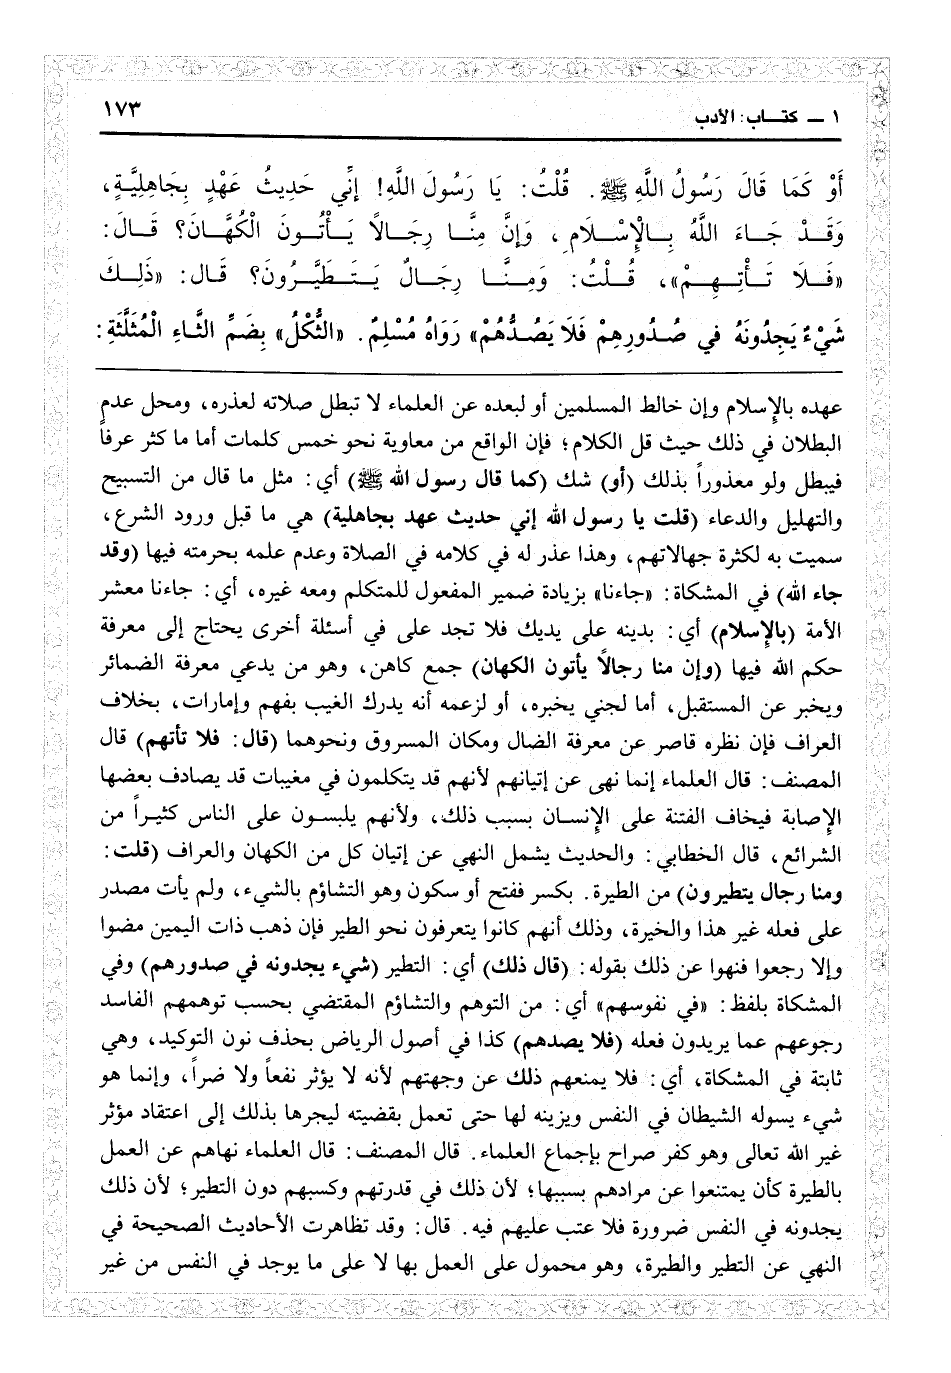 ١ - كتاب: الأدب
١٧٣
أَوْ كَمَا قَالَ رَسُولُ اللَّهِ ﷺ. قُلْتُ: يَا رَسُولَ اللَّهِ! إِنِّي حَدِيثُ عَهْدٍ بِجَاهِلِيَّةٍ،
وَقَدْ جَاءَ اللَّهُ بِالْإِسْلَامِ، وَإِنَّ مِنَّا رِجَالاً يَأْتُونَ الْكُهَّانَ؟ قَالَ:
«فَلَا تَأْتِهِمْ»، قُلْتُ: وَمِنَّا رِجَالٌ يَتَطَيَّرُونَ؟ قَال: «ذَلِكَ
شَيْءٌ يَجِدُونَهُ فِي صُدُورِهِمْ فَلَا يَصُدُّهُمْ» رَوَاهُ مُسْلِمٌ. «الثُّكْلُ» بِضَمِّ الثَّاءِ الْمُثَلَّثَةِ:
عهده بالإسلام وإن خالط المسلمين أو لبعده عن العلماء لا تبطل صلاته لعذره، ومحل عدم
البطلان في ذلك حيث قل الكلام؛ فإن الواقع من معاوية نحو خمس كلمات أما ما كثر عرفاً
فيبطل ولو معذوراً بذلك (أو) شك (كما قال رسول الله ﷺ) أي: مثل ما قال من التسبيح
والتهليل والدعاء (قلت يا رسول الله إني حديث عهد بجاهلية) هي ما قبل ورود الشرع،
سميت به لكثرة جهالاتهم، وهذا عذر له في كلامه في الصلاة وعدم علمه بحرمته فيها (وقد
جاء الله) في المشكاة: «جاءنا» بزيادة ضمير المفعول للمتكلم ومعه غيره، أي: جاءنا معشر
الأمة (بالإسلام) أي: بدينه على يديك فلا تجد على في أسئلة أخرى يحتاج إلى معرفة
حكم الله فيها (وإن منا رجالاً يأتون الكهان) جمع كاهن، وهو من يدعي معرفة الضمائر
ويخبر عن المستقبل، أما لجني يخبره، أو لزعمه أنه يدرك الغيب بفهم وإمارات، بخلاف
العراف فإن نظره قاصر عن معرفة الضال ومكان المسروق ونحوهما (قال: فلا تأتهم) قال
المصنف: قال العلماء إنما نهى عن إتيانهم لأنهم قد يتكلمون في مغيبات قد يصادف بعضها
الإصابة فيخاف الفتنة على الإنسان بسبب ذلك، ولأنهم يلبسون على الناس كثيراً من
الشرائع، قال الخطابي: والحديث يشمل النهي عن إتيان كل من الكهان والعراف (قلت:
ومنا رجال يتطيرون) من الطيرة. بكسر ففتح أو سكون وهو التشاؤم بالشيء، ولم يأت مصدر
على فعله غير هذا والخيرة، وذلك أنهم كانوا يتعرفون نحو الطير فإن ذهب ذات اليمين مضوا
وإلا رجعوا فنهوا عن ذلك بقوله: (قال ذلك) أي: التطير (شيء يجدونه في صدورهم) وفي
المشكاة بلفظ: «في نفوسهم» أي: من التوهم والتشاؤم المقتضي بحسب توهمهم الفاسد
رجوعهم عما يريدون فعله (فلا يصدهم) كذا في أصول الرياض بحذف نون التوكيد، وهي
ثابتة في المشكاة، أي: فلا يمنعهم ذلك عن وجهتهم لأنه لا يؤثر نفعاً ولا ضراً، وإنما هو
شيء يسوله الشيطان في النفس ويزينه لها حتى تعمل بقضيته ليجرها بذلك إلى اعتقاد مؤثر
غير الله تعالى وهو كفر صراح بإجماع العلماء. قال المصنف: قال العلماء نهاهم عن العمل
بالطيرة كأن يمتنعوا عن مرادهم بسببها؛ لأن ذلك في قدرتهم وكسبهم دون التطير؛ لأن ذلك
يجدونه في النفس ضرورة فلا عتب عليهم فيه. قال: وقد تظاهرت الأحاديث الصحيحة في
النهي عن التطير والطيرة، وهو محمول على العمل بها لا على ما يوجد في النفس من غير